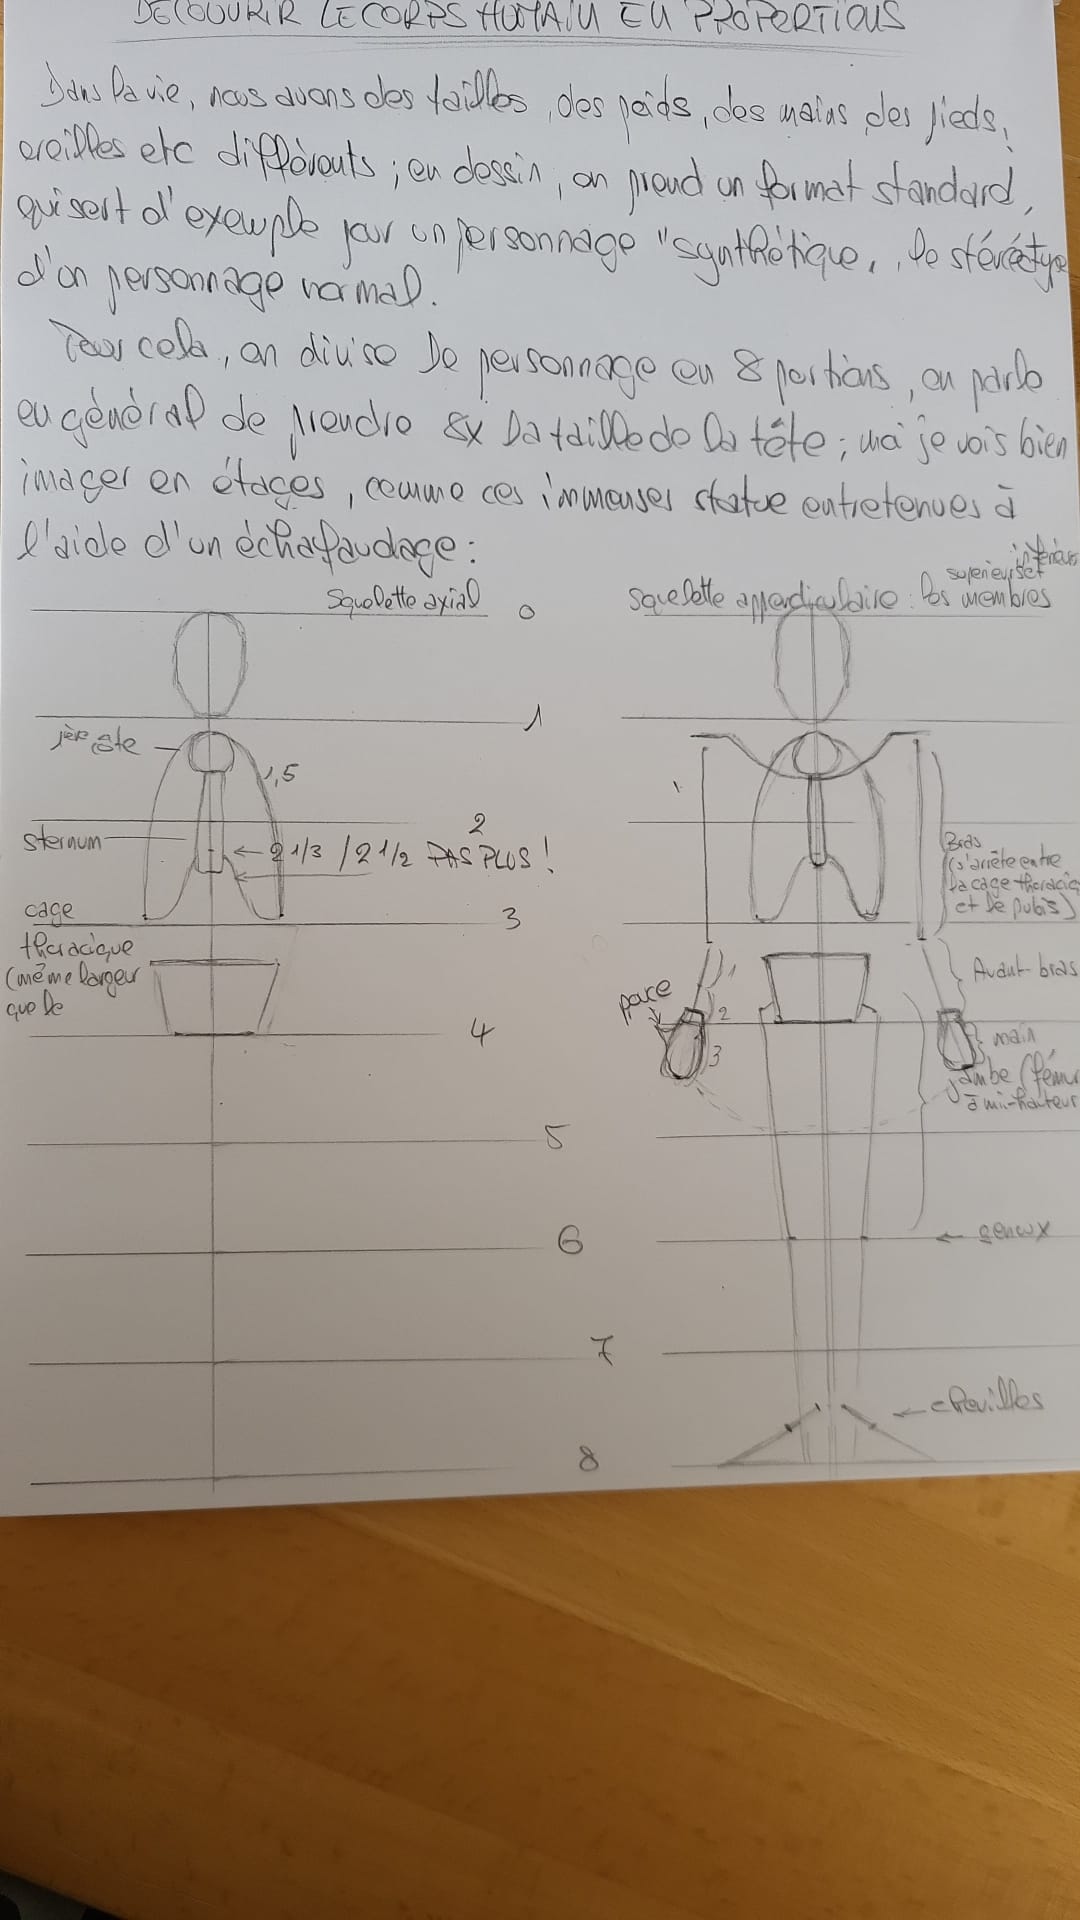 DECOUURIR LE CORPS HUMAIN EN PROPERTIONS
Dans la vie, nous avons des tailles, des poids, des mains des pieds,
oreilles etc différents ; en dessin, on prend un format standard,
qui sert d'exemple pour un personnage "synthétique", le stéréotype
d'un personnage normal.
Pour cela, on divise le personnage en 8 portions, on parle
en général de prendre 8x la taille de la tête ; moi je vois bien
imager en étages, comme ces immenses statue entretenues à
l'aide d'un échafaudage :
Squelette axial 0
squelette appendiculaire : les membres
superieurs et
inférieurs
1
1ère côte
1,5
2
sternum
2 1/3 / 2 1/2 PAS PLUS !
cage
thoracique
(même largeur
que le
3
4
5
6
7
8
Bras
(s'arrête entre
la cage thoraciq
et le pubis)
Avant-bras
pouce
1
2
3
main
jambe (fému
à mi-hauteur
← genoux
← chevilles